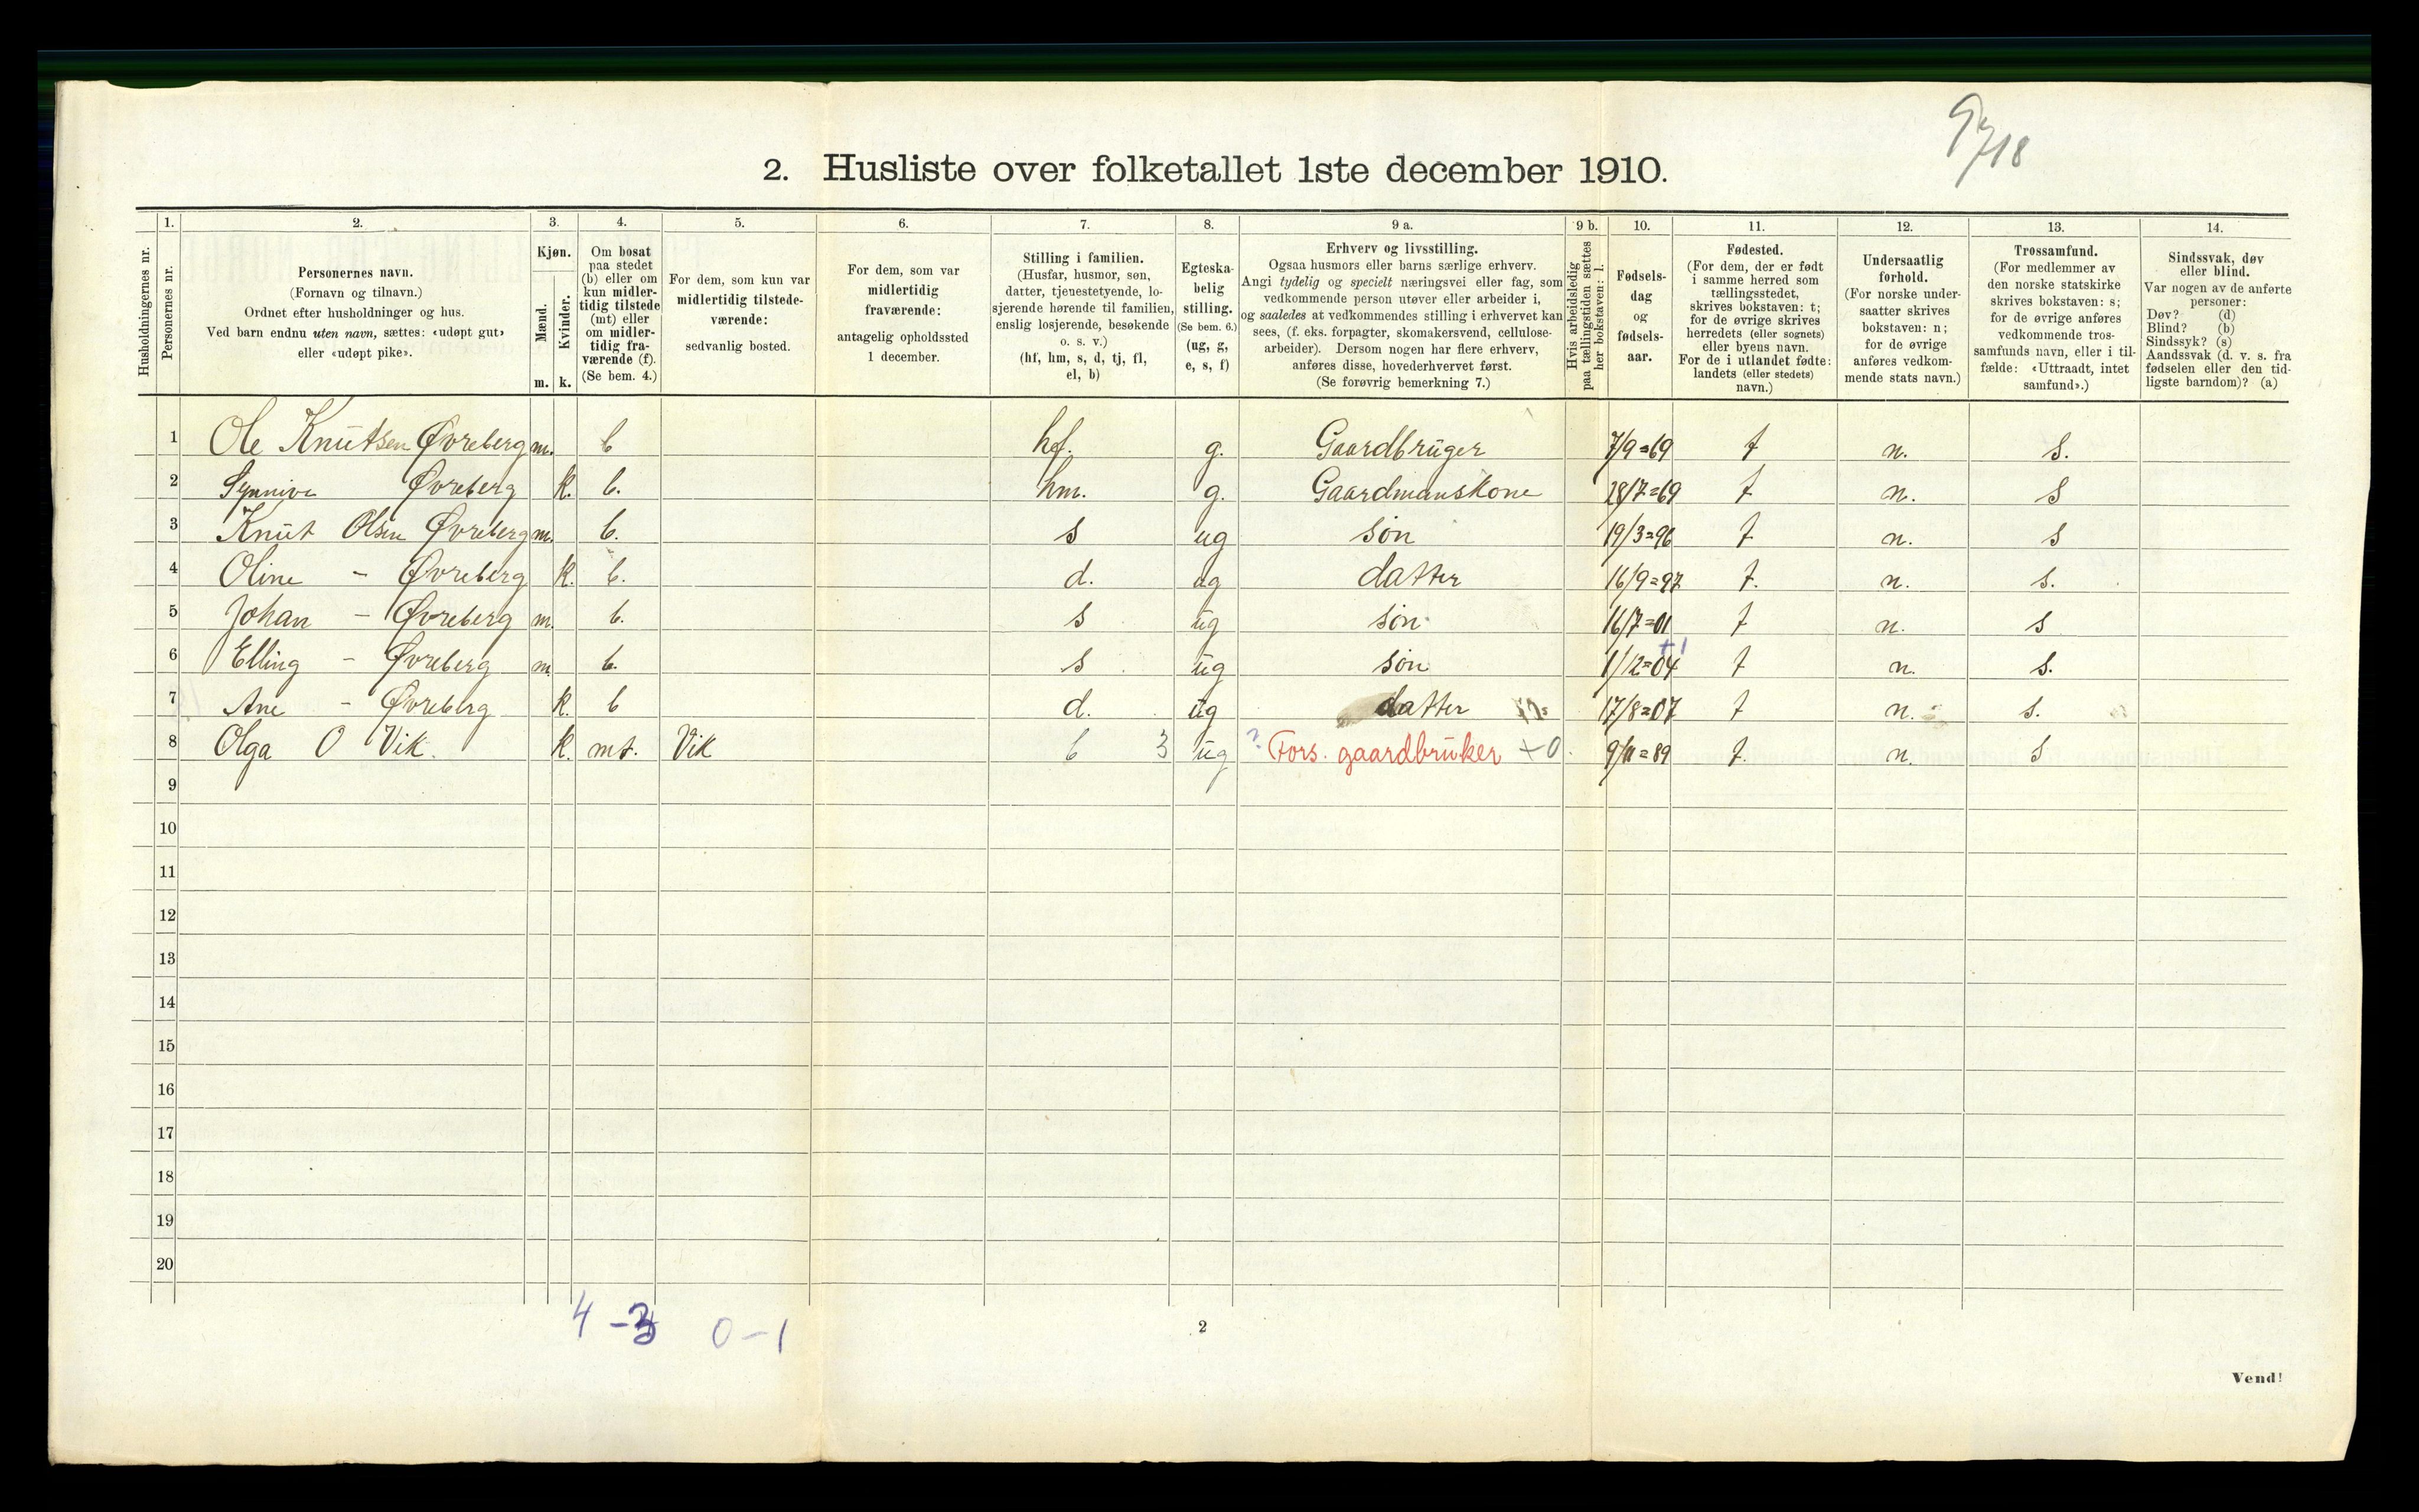 2. Husliste over folketallet 1ste december 1910.
Husholdningernes nr.
1.
Personernes nr.
2.
Personernes navn.
(Fornavn og tilnavn.)
Ordnet efter husholdninger og hus.
Ved barn endnu uten navn, sættes: «udøpt gut»
eller «udøpt pike».
3.
Kjøn.
Mænd.
Kvinder.
m. k.
4.
Om bosat
paa stedet
(b) eller om
kun midler-
tidig tilstede
(mt) eller
om midler-
tidig fra-
værende (f).
(Se bem. 4.)
5.
For dem, som kun var
midlertidig tilstede-
værende:
sedvanlig bosted.
6.
For dem, som var
midlertidig
fraværende:
antagelig opholdssted
1 december.
7.
Stilling i familien.
(Husfar, husmor, søn,
datter, tjenestetyende, lo-
sjerende hørende til familien,
enslig losjerende, besøkende
o. s. v.)
(hf, hm, s, d, tj, fl,
el, b)
8.
Egteska-
belig
stilling.
(Se bem. 6.)
(ug, g,
e, s, f)
9 a.
Erhverv og livsstilling.
Ogsaa husmors eller barns særlige erhverv.
Angi tydelig og specielt næringsvei eller fag, som
vedkommende person utøver eller arbeider i,
og saaledes at vedkommendes stilling i erhvervet kan
sees, (f. eks. forpagter, skomakersvend, cellulose-
arbeider). Dersom nogen har flere erhverv,
anføres disse, hovederhvervet først.
(Se forøvrig bemerkning 7.)
9 b.
Hvis arbeidsledig
paa tællingstiden sættes
her bokstaven: l.
10.
Fødsels-
dag
og
fødsels-
aar.
11.
Fødested.
(For dem, der er født
i samme herred som
tællingsstedet,
skrives bokstaven: t;
for de øvrige skrives
herredets (eller sognets)
eller byens navn.
For de i utlandet fødte:
landets (eller stedets)
navn.)
12.
Undersaatlig
forhold.
(For norske under-
saatter skrives
bokstaven: n;
for de øvrige
anføres vedkom-
mende stats navn.)
13.
Trossamfund.
(For medlemmer av
den norske statskirke
skrives bokstaven: s;
for de øvrige anføres
vedkommende tros-
samfunds navn, eller i til-
fælde: «Uttraadt, intet
samfund».)
14.
Sindssvak, døv
eller blind.
Var nogen av de anførte
personer:
Døv? (d)
Blind? (b)
Sindssyk? (s)
Aandssvak (d. v. s. fra
fødselen eller den tid-
ligste barndom)? (a)
1 Ole Knutsen Øvreberg m. b hf. g. Gaardbruger 7/9=69 t n. s.
2 Synnive Øvreberg k. b. hm. g. Gaardmanskone 28/7=69 t n. s
3 Knut Olsen Øvreberg m. b. s ug søn 19/3=96 t n. s
4 Oline - Øvreberg k. b. d. ug datter 16/9=97 t. n. s.
5 Johan - Øvreberg m. b. s ug søn 16/7=01 t n. s
6 Elling - Øvreberg m. b. s ug søn 1/12=04 t n. s.
7 Ane - Øvreberg k. b d. ug datter 17/8=07 t n. s.
8 Olga O Vik. k. mt. Vik b 3 ug ? Fors. gaardbruker +0. 9/11=89 t. n. s
9
10
11
12
13
14
15
16
17
18
19
20
4 - 3 0 - 1
2
Vend!